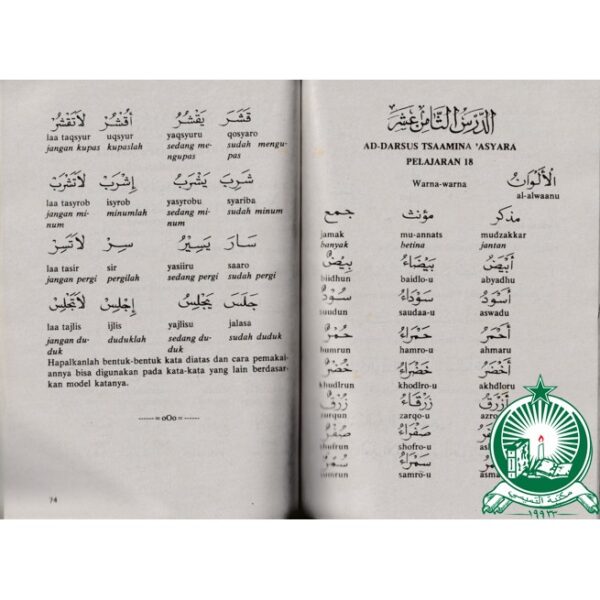 قَشَرَ يَقْشُرُ أُقْشُرْ لَاتَقْشُرْ
laa taqsyur uqsyur yaqsyuru qosyaro
jangan kupas kupaslah sedang me- sudah mengu-
ngupas pas
شَرِبَ يَشْرَبُ إِشْرَبْ لَاتَشْرَبْ
laa tasyrob isyrob yasyrobu syariba
jangan mi- minumlah sedang mi- sudah minum
num num
سَارَ يَسِيْرُ سِرْ لَاتَسِرْ
laa tasir sir yasiiru saaro
jangan pergi pergilah sedang pergi sudah pergi
جَلَسَ يَجْلِسُ إِجْلِسْ لَاتَجْلِسْ
laa tajlis ijlis yajlisu jalasa
jangan du- duduklah sedang du- sudah duduk
duk duk
Hapalkanlah bentuk-bentuk kata diatas dan cara pemakai-
annya bisa digunakan pada kata-kata yang lain berdasar-
kan model katanya.
----- = oOo = -----
74
الدَّرْسُ الثَّامِنَ عَشَرَ
AD-DARSUS TSAAMINA 'ASYARA
PELAJARAN 18
Warna-warna الْأَلْوَانُ
al-alwaanu
مذكر مؤنث جمع
jamak mu-annats mudzakkar
banyak betina jantan
أَبْيَضُ بَيْضَاءُ بِيْضٌ
biidhun baidlo-u abyadhu
أَسْوَدُ سَوْدَاءُ سُوْدٌ
suudun saudaa-u aswadu
أَحْمَرُ حَمْرَاءُ حُمْرٌ
humrun hamro-u ahmaru
أَخْضَرُ خَضْرَاءُ خُضْرٌ
khudlrun khodlro-u akhdloru
أَزْرَقُ زَرْقَاءُ زُرْقٌ
zurqun zarqo-u
صَفْرَاءُ صُفْرٌ
shufrun shofro-u
سَمْرَاءُ سُمْرٌ
sumrun samro-u
مكتبة القديسي
١٩٩٣